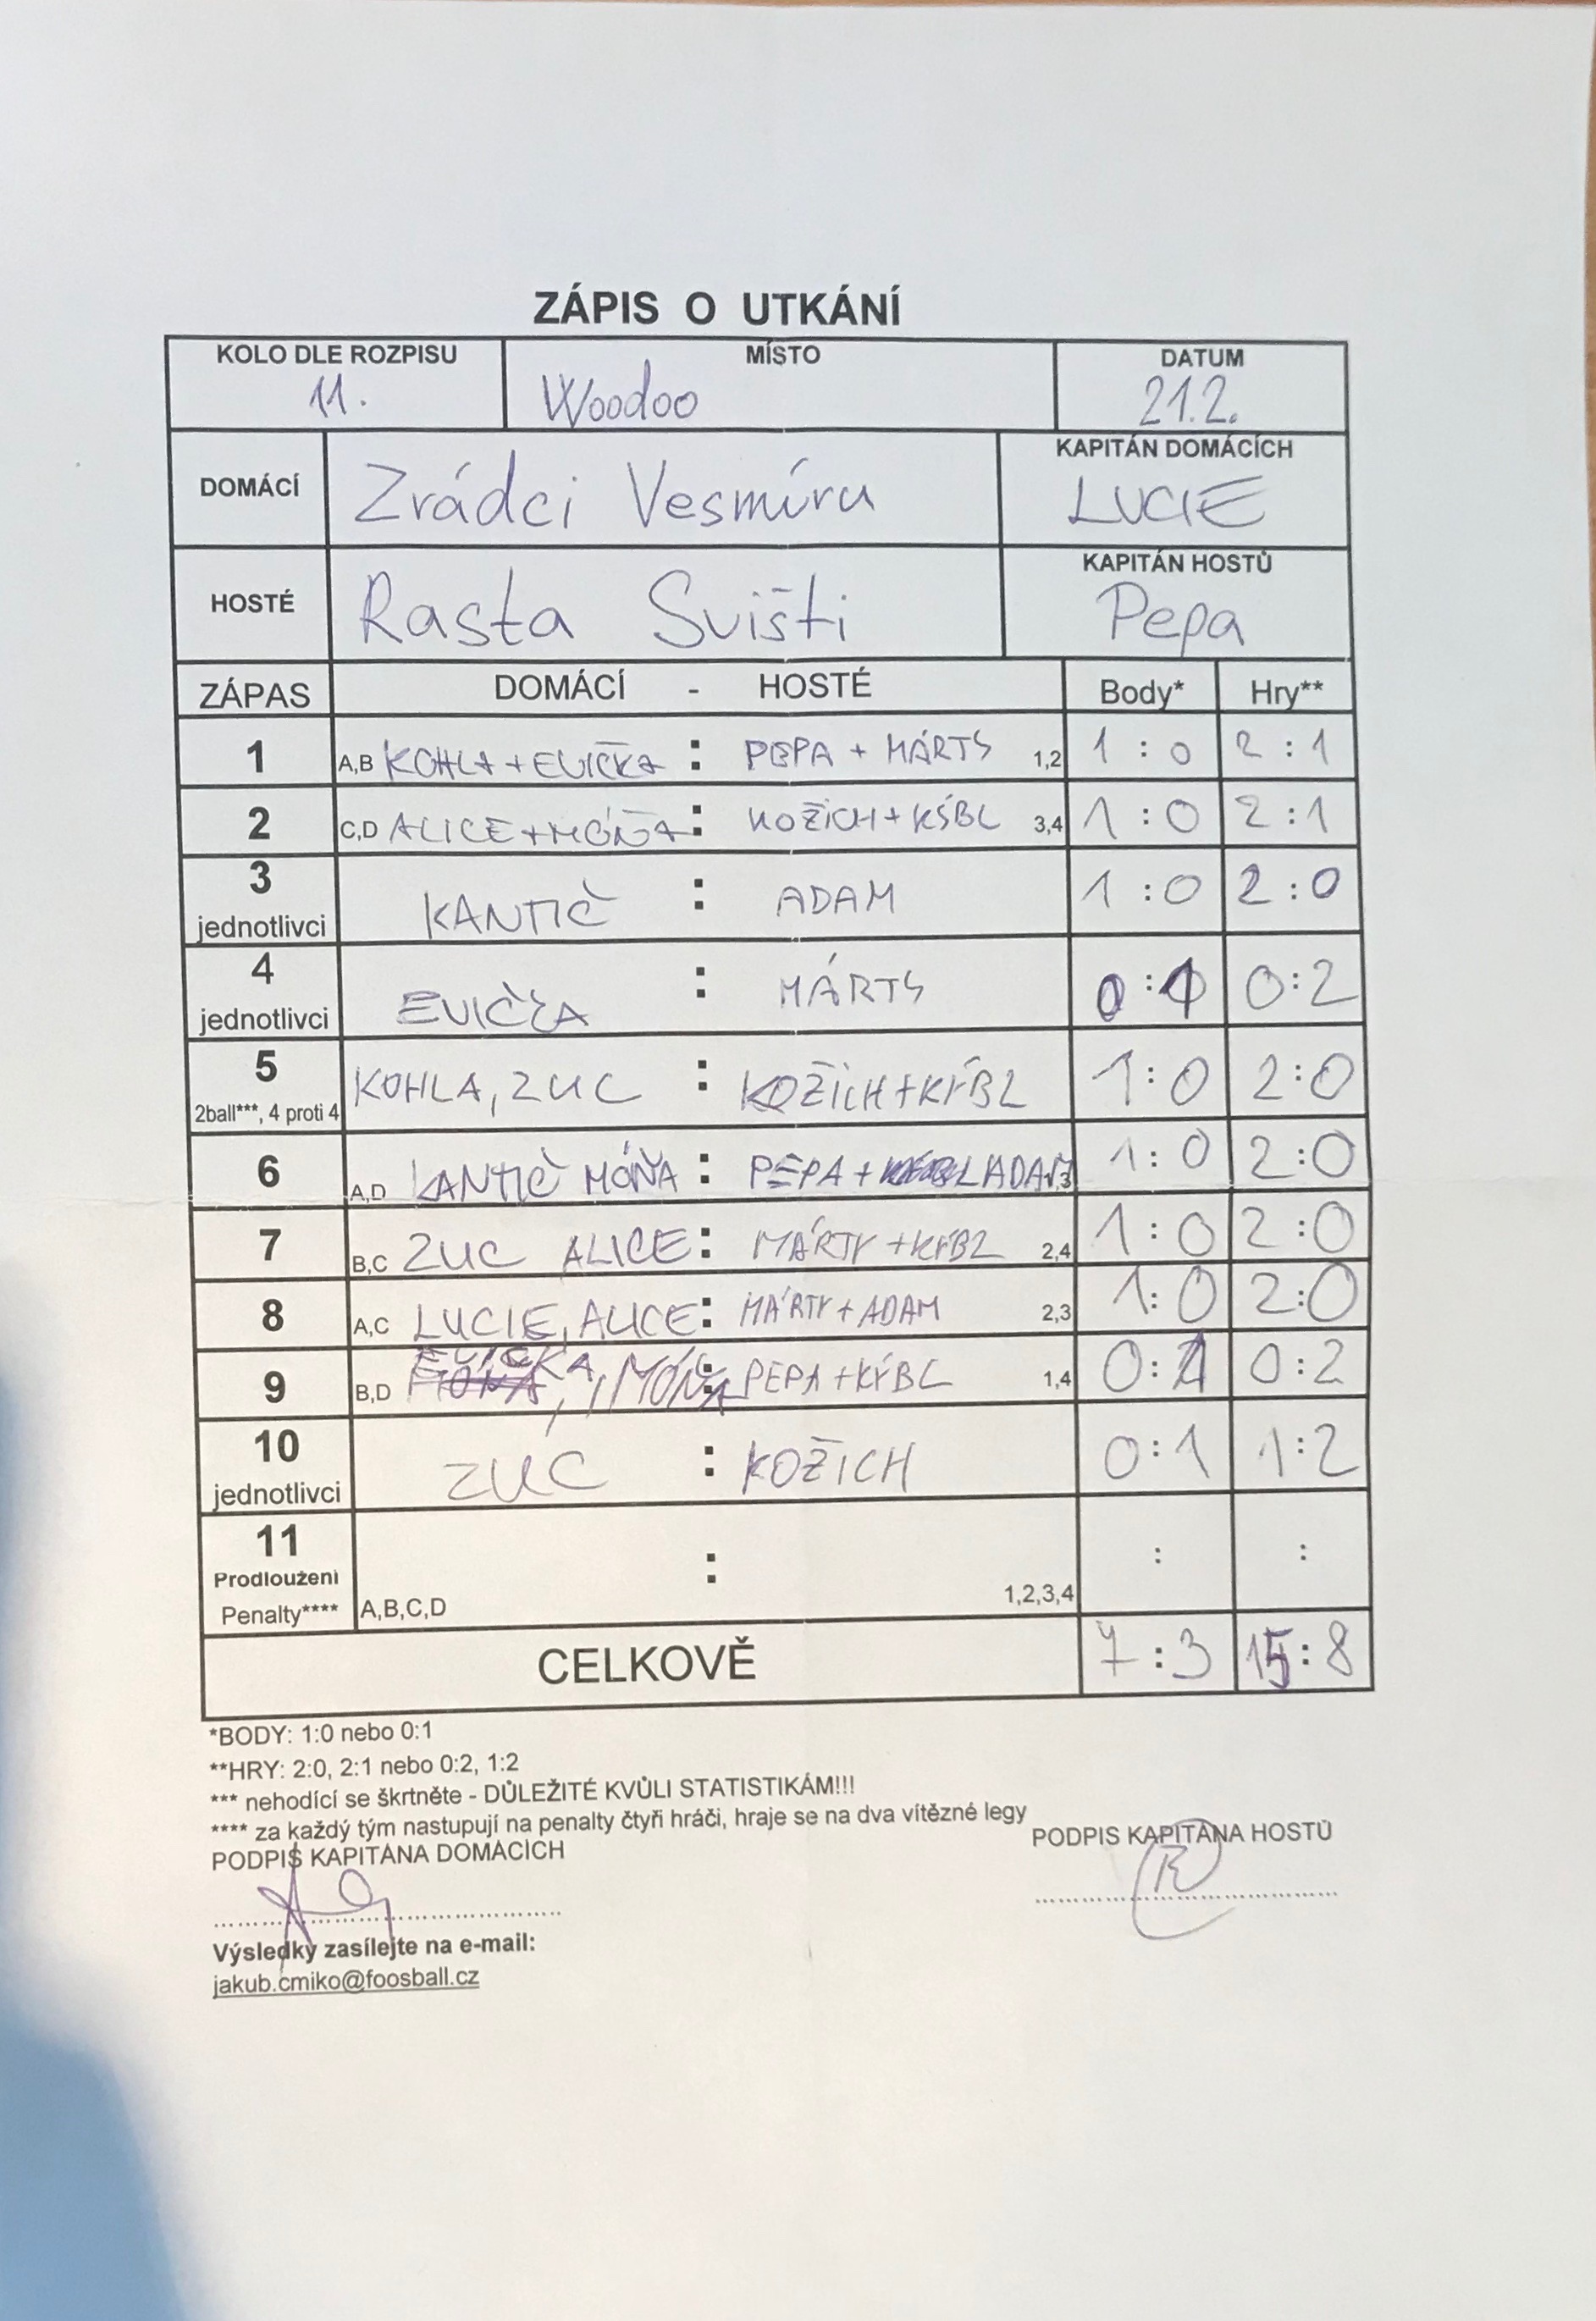 ZÁPIS O UTKÁNÍ
KOLO DLE ROZPISU MÍSTO DATUM
11. Woodoo 21.2.
DOMÁCÍ Zrádci Vesmíru KAPITÁN DOMÁCÍCH
LUCIE
HOSTÉ Rasta Svišti KAPITÁN HOSTŮ
Pepa
ZÁPAS DOMÁCÍ - HOSTÉ Body* Hry**
1 A,B KOHLA + EVIČKA : PEPA + MÁRTY 1,2 1 : 0 2 : 1
2 C,D ALICE + MÓŇA : KOŽICH + KŕBL 3,4 1 : 0 2 : 1
3 jednotlivci KANTIČ : ADAM 1 : 0 2 : 0
4 jednotlivci EVIČKA : MÁRTY 0 : 1 0 : 2
5 KOHLA, ZUC : KOŽICH + KŕBL 1 : 0 2 : 0
2ball***, 4 proti 4
6 A,D KANTIČ MÓŇA : PEPA + ADAM 1,3 1 : 0 2 : 0
7 B,C ZUC ALICE : MÁRTY + KŕBL 2,4 1 : 0 2 : 0
8 A,C LUCIE, ALICE : MÁRTY + ADAM 2,3 1 : 0 2 : 0
9 B,D EVIČKA, MÓŇA : PEPA + KŕBL 1,4 0 : 1 0 : 2
10 jednotlivci ZUC : KOŽICH 0 : 1 1 : 2
11 : : :
Prodloužení
Penalty**** A,B,C,D 1,2,3,4
CELKOVĚ 7 : 3 15 : 8
*BODY: 1:0 nebo 0:1
**HRY: 2:0, 2:1 nebo 0:2, 1:2
*** nehodící se škrtněte - DŮLEŽITÉ KVŮLI STATISTIKÁM!!!
**** za každý tým nastupují na penalty čtyři hráči, hraje se na dva vítězné legy
PODPIS KAPITÁNA DOMÁCÍCH PODPIS KAPITÁNA HOSTŮ
Výsledky zasílejte na e-mail:
jakub.cmiko@foosball.cz